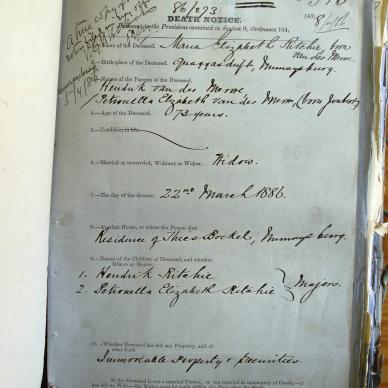 86/273
DEATH NOTICE.
Pursuant to the Provisions contained in Section 9, Ordinance 104,
A true copy of
8/4/86
5/4/86
1.—Name of the Deceased. Maria Elizabeth Ritchie, born
van der Merwe.
2.—Birth-place of the Deceased. Quaggasdrift, Murraysburg.
3.—Names of the Parents of the Deceased.
Hendrik van der Merwe
Petronella Elizabeth van der Merwe, (born Joubert)
4.—Age of the Deceased. 73 years.
5.—Condition in life.
6.—Married or unmarried, Widower or Widow. Widow.
7.—The day of the decease. 22nd March 1886.
8.—At what House, or where the Person died
Residence of Murraysburg.
9.—Names of the Children of Deceased, and whether
Minors or Majors.
1. Hendrik Ritchie
2. Petronella Elizabeth Ritchie } Majors.
10.—Whether Deceased has left any Property, and of
what kind.
Immoveable Property & Securities.
If the Deceased is not a married Person, or not married in community of Goods,—